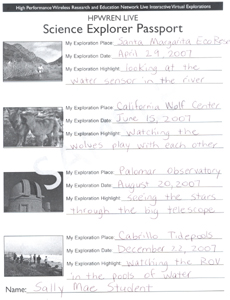 High Performance Wireless Research and Education Network Live Interactive/Virtual Explorations
HPWREN LIVE
Science Explorer Passport
My Exploration Place: Santa Margarita EcoRes
My Exploration Date: April 29, 2007
My Exploration Highlight: looking at the
water sensor in the river
My Exploration Place: California Wolf Center
My Exploration Date: June 15, 2007
My Exploration Highlight: Watching the
wolves play with each other
My Exploration Place: Palomar Observatory
My Exploration Date: August 20, 2007
My Exploration Highlight: seeing the stars
through the big telescope
My Exploration Place: Cabrillo Tidepools
My Exploration Date: December 22, 2007
My Exploration Highlight: watching the ROV
in the pools of water
Name: Sally Mae Student